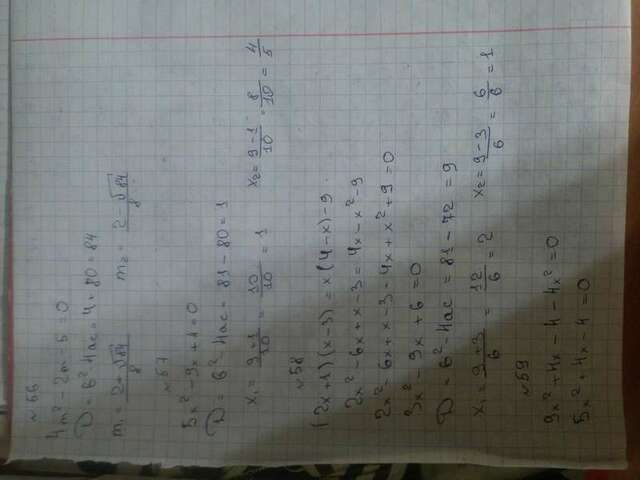 №56
4m² - 2m - 5 = 0
D = b² - 4ac = 4 + 80 = 84
m₁ = (2+√84)/8 m₂ = (2-√84)/8
№57
5x² - 9x + 4 = 0
D = b² - 4ac = 81 - 80 = 1
x₁ = (9+1)/10 = 10/10 = 1 x₂ = (9-1)/10 = 8/10 = 4/5
№58
(2x+1)(x-3) = x(4-x)-9.
2x² - 6x + x - 3 = 4x - x² - 9
2x² - 6x + x - 3 - 4x + x² + 9 = 0
3x² - 9x + 6 = 0
D = b² - 4ac = 81 - 72 = 9
x₁ = (9+3)/6 = 12/6 = 2 x₂ = (9-3)/6 = 6/6 = 1
№59
9x² + 4x - 4 - 4x² = 0
5x² + 4x - 4 = 0